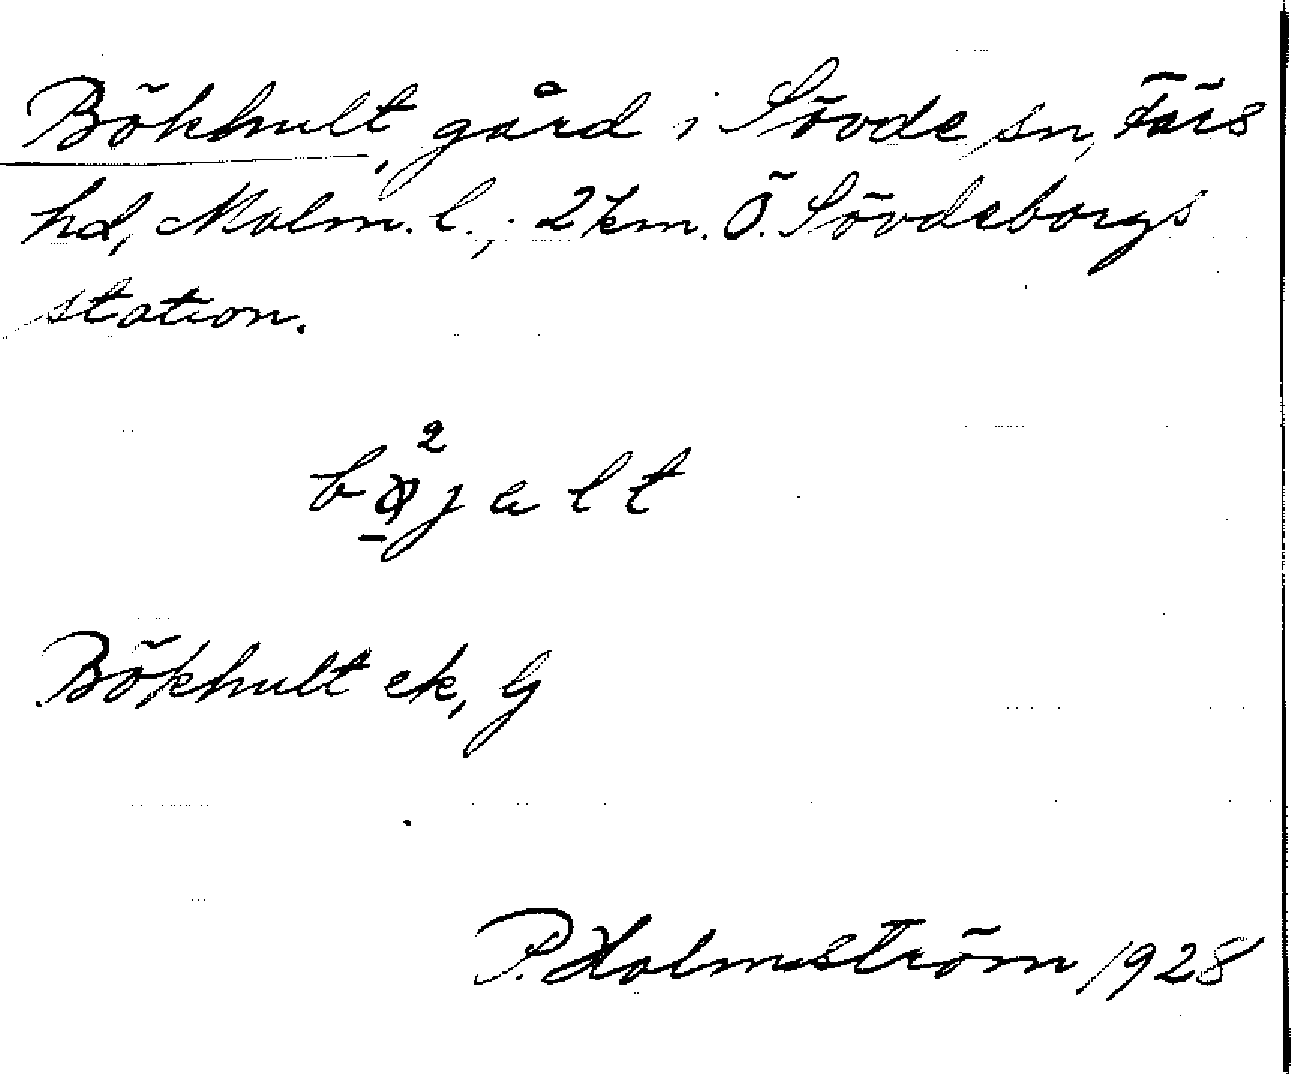 Bökhult, gård i Sövde sn, Färs
hd, Malm. l.; 2 km. Ö. Sövdeborgs
station.
Bökhult ek, G
P. Holmström 1928